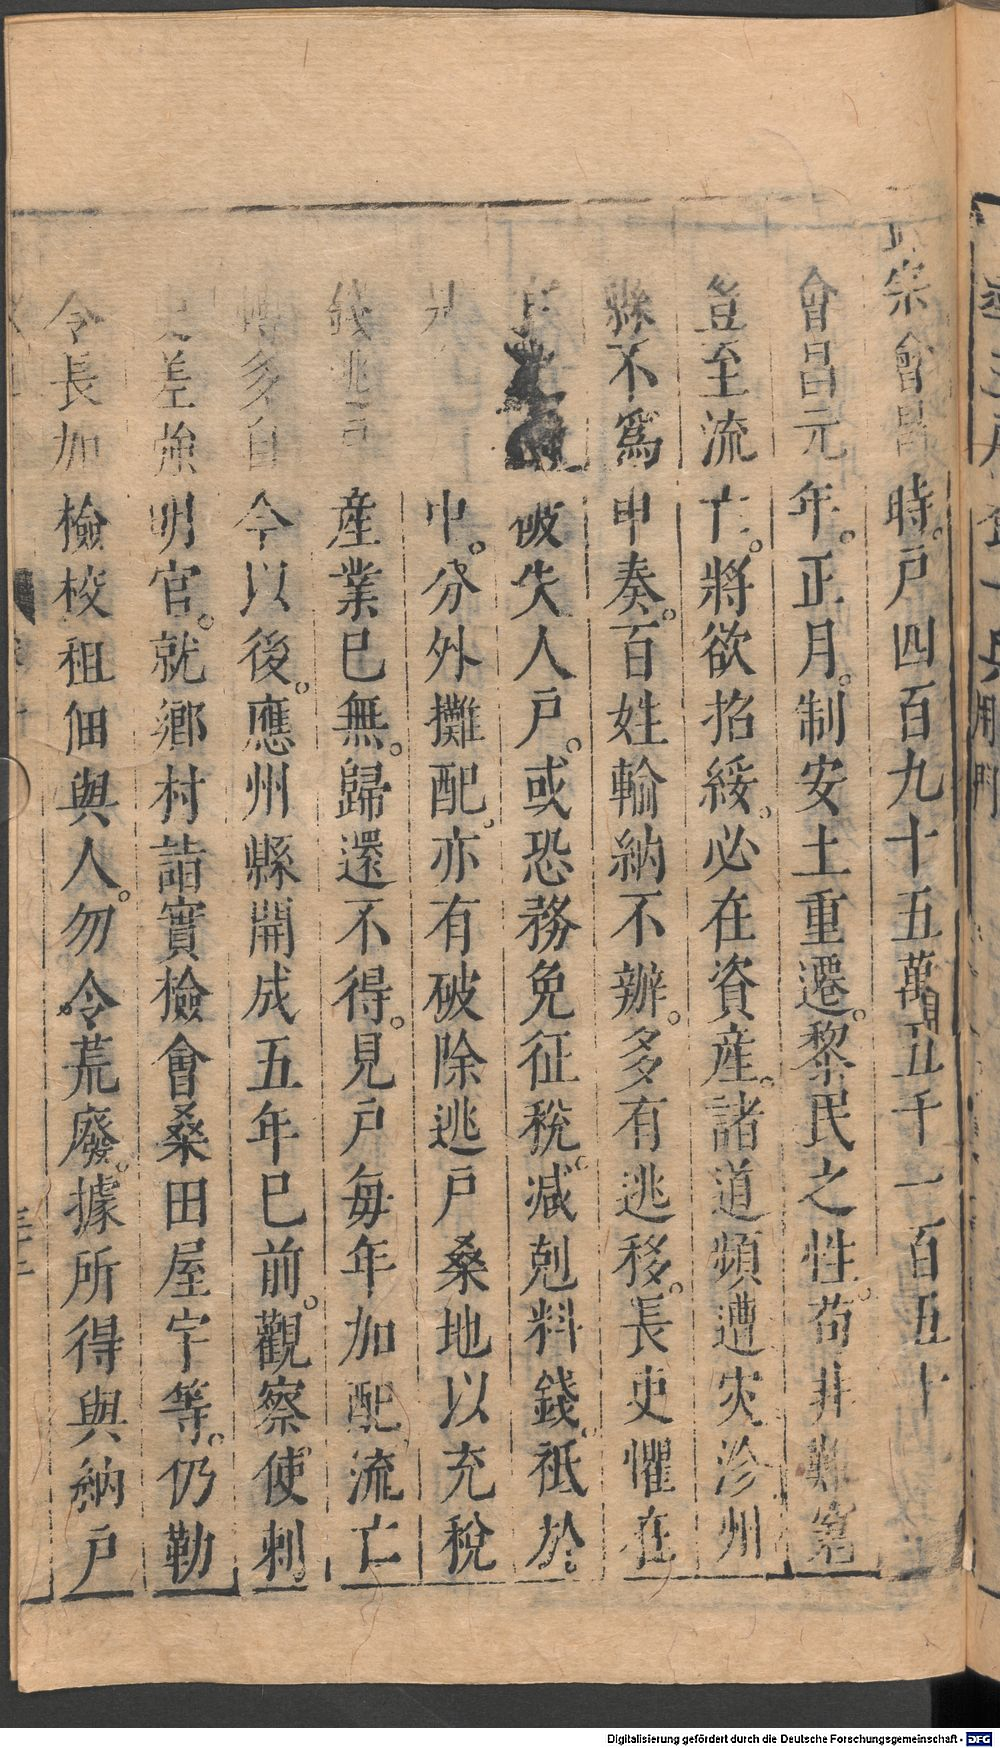 宗會昌時。戶四百九十五萬五千一百五十
會昌元年。正月。制安土重遷。黎民之性。苟非難窘
豈至流亡。將欲招綏。必在資産。諸道頻遭灾沴州
縣不爲申奏。百姓輸納不辦。多有逃移。長吏懼在
破失人戶。或恐務免征稅。減剋料錢。祗於
中。分外攤配。亦有破除逃戶桑地以充稅
錢逃戶産業已無。歸還不得。見戶每年加配流亡
轉多自今以後。應州縣開成五年已前。觀察使刺
史差強明官。就鄉村詣實檢會桑田屋宇等。仍勒
令長加檢校租佃與人。勿令荒廢。據所得與納戶
Digitalisierung gefördert durch die Deutsche Forschungsgemeinschaft - DFG